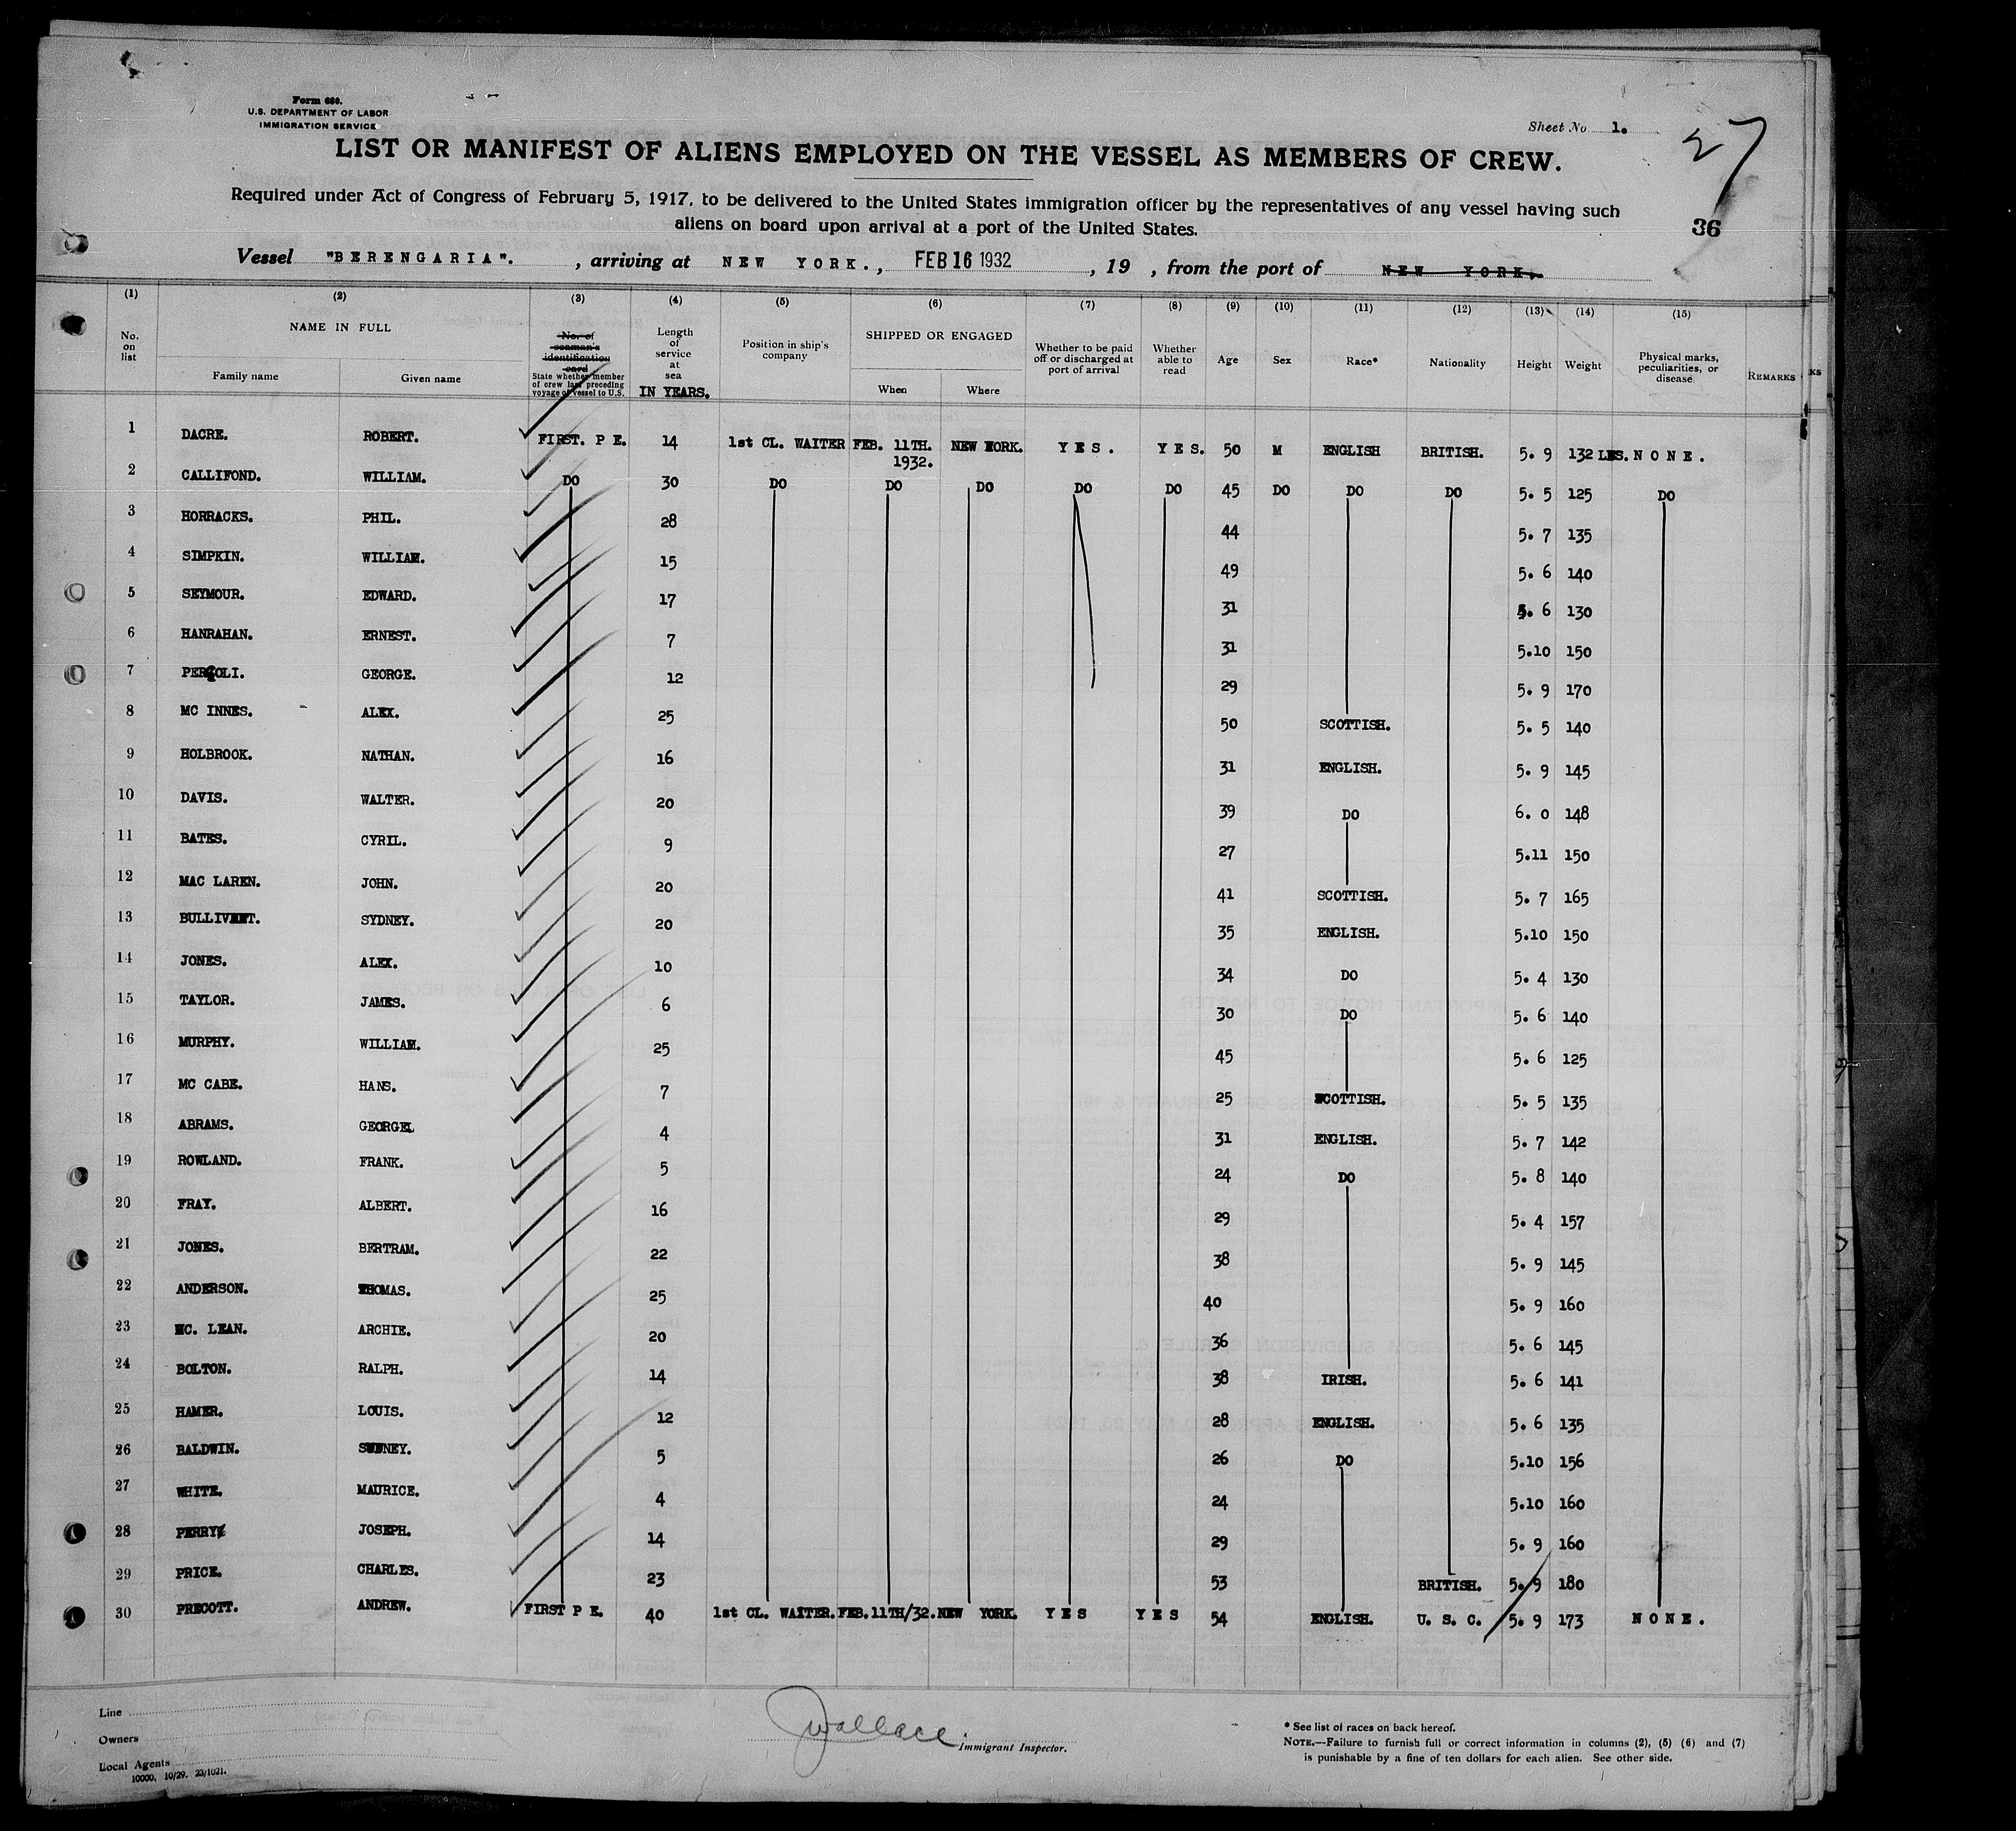 Form 680.
U.S. DEPARTMENT OF LABOR
IMMIGRATION SERVICE
Sheet No 1.
27
LIST OR MANIFEST OF ALIENS EMPLOYED ON THE VESSEL AS MEMBERS OF CREW.
Required under Act of Congress of February 5, 1917, to be delivered to the United States immigration officer by the representatives of any vessel having such
aliens on board upon arrival at a port of the United States.
36
Vessel "BERENGARIA". , arriving at NEW YORK., FEB 16 1932 , 19 , from the port of NEW YORK.
(1) (2) (3) (4) (5) (6) (7) (8) (9) (10) (11) (12) (13) (14) (15)
No. on list NAME IN FULL Family name Given name No. of seaman's identification card State whether member of crew last preceding voyage of vessel to U.S. Length of service at sea IN YEARS. Position in ship's company SHIPPED OR ENGAGED When Where Whether to be paid off or discharged at port of arrival Whether able to read Age Sex Race* Nationality Height Weight Physical marks, peculiarities, or disease REMARKS KS
1 DACRE. ROBERT. FIRST. P E. 14 1st CL. WAITER FEB. 11TH. 1932. NEW YORK. YES. YES. 50 M ENGLISH BRITISH. 5. 9 132 LBS. NONE.
2 CALLIFOND. WILLIAM. DO 30 DO DO DO DO DO 45 DO DO DO 5. 5 125 DO
3 HORRACKS. PHIL. 28 44 5. 7 135
4 SIMPKIN. WILLIAM. 15 49 5. 6 140
5 SEYMOUR. EDWARD. 17 31 5. 6 130
6 HANRAHAN. ERNEST. 7 31 5.10 150
7 GEORGE. 12 29 5. 9 170
8 MC INNES. ALEX. 25 50 SCOTTISH. 5. 5 140
9 HOLBROOK. NATHAN. 16 31 ENGLISH. 5. 9 145
10 DAVIS. WALTER. 20 39 DO 6. 0 148
11 BATES. CYRIL. 9 27 5.11 150
12 MAC LAREN. JOHN. 20 41 SCOTTISH. 5. 7 165
13 SYDNEY. 20 35 ENGLISH. 5.10 150
14 JONES. ALEX. 10 34 DO 5. 4 130
15 TAYLOR. JAMES. 6 30 DO 5. 6 140
16 MURPHY. WILLIAM. 25 45 5. 6 125
17 MC CABE. HANS. 7 25 SCOTTISH. 5. 5 135
18 ABRAMS. GEORGE. 4 31 ENGLISH. 5. 7 142
19 ROWLAND. FRANK. 5 24 DO 5. 8 140
20 FRAY. ALBERT. 16 29 5. 4 157
21 JONES. BERTRAM. 22 38 5. 9 145
22 ANDERSON. THOMAS. 25 40 5. 9 160
23 MC. LEAN. ARCHIE. 20 36 5. 6 145
24 BOLTON. RALPH. 14 38 IRISH. 5. 6 141
25 HAMER. LOUIS. 12 28 ENGLISH. 5. 6 135
26 BALDWIN. 5 26 DO 5.10 156
27 WHITE. MAURICE. 4 24 5.10 160
28 PERRY JOSEPH. 14 29 5. 9 160
29 PRICE. CHARLES. 23 53 BRITISH. 5. 9 180
30 PRECOTT. ANDREW. FIRST P E. 40 1st CL. WAITER. FEB.11TH/32. NEW YORK. YES YES 54 ENGLISH. U. S. C. 5. 9 173 NONE.
Line
Owners
Local Agents
10000, 10/29. 23/1021.
Wallace
Immigrant Inspector.
* See list of races on back hereof.
NOTE.—Failure to furnish full or correct information in columns (2), (5) (6) and (7)
is punishable by a fine of ten dollars for each alien. See other side.